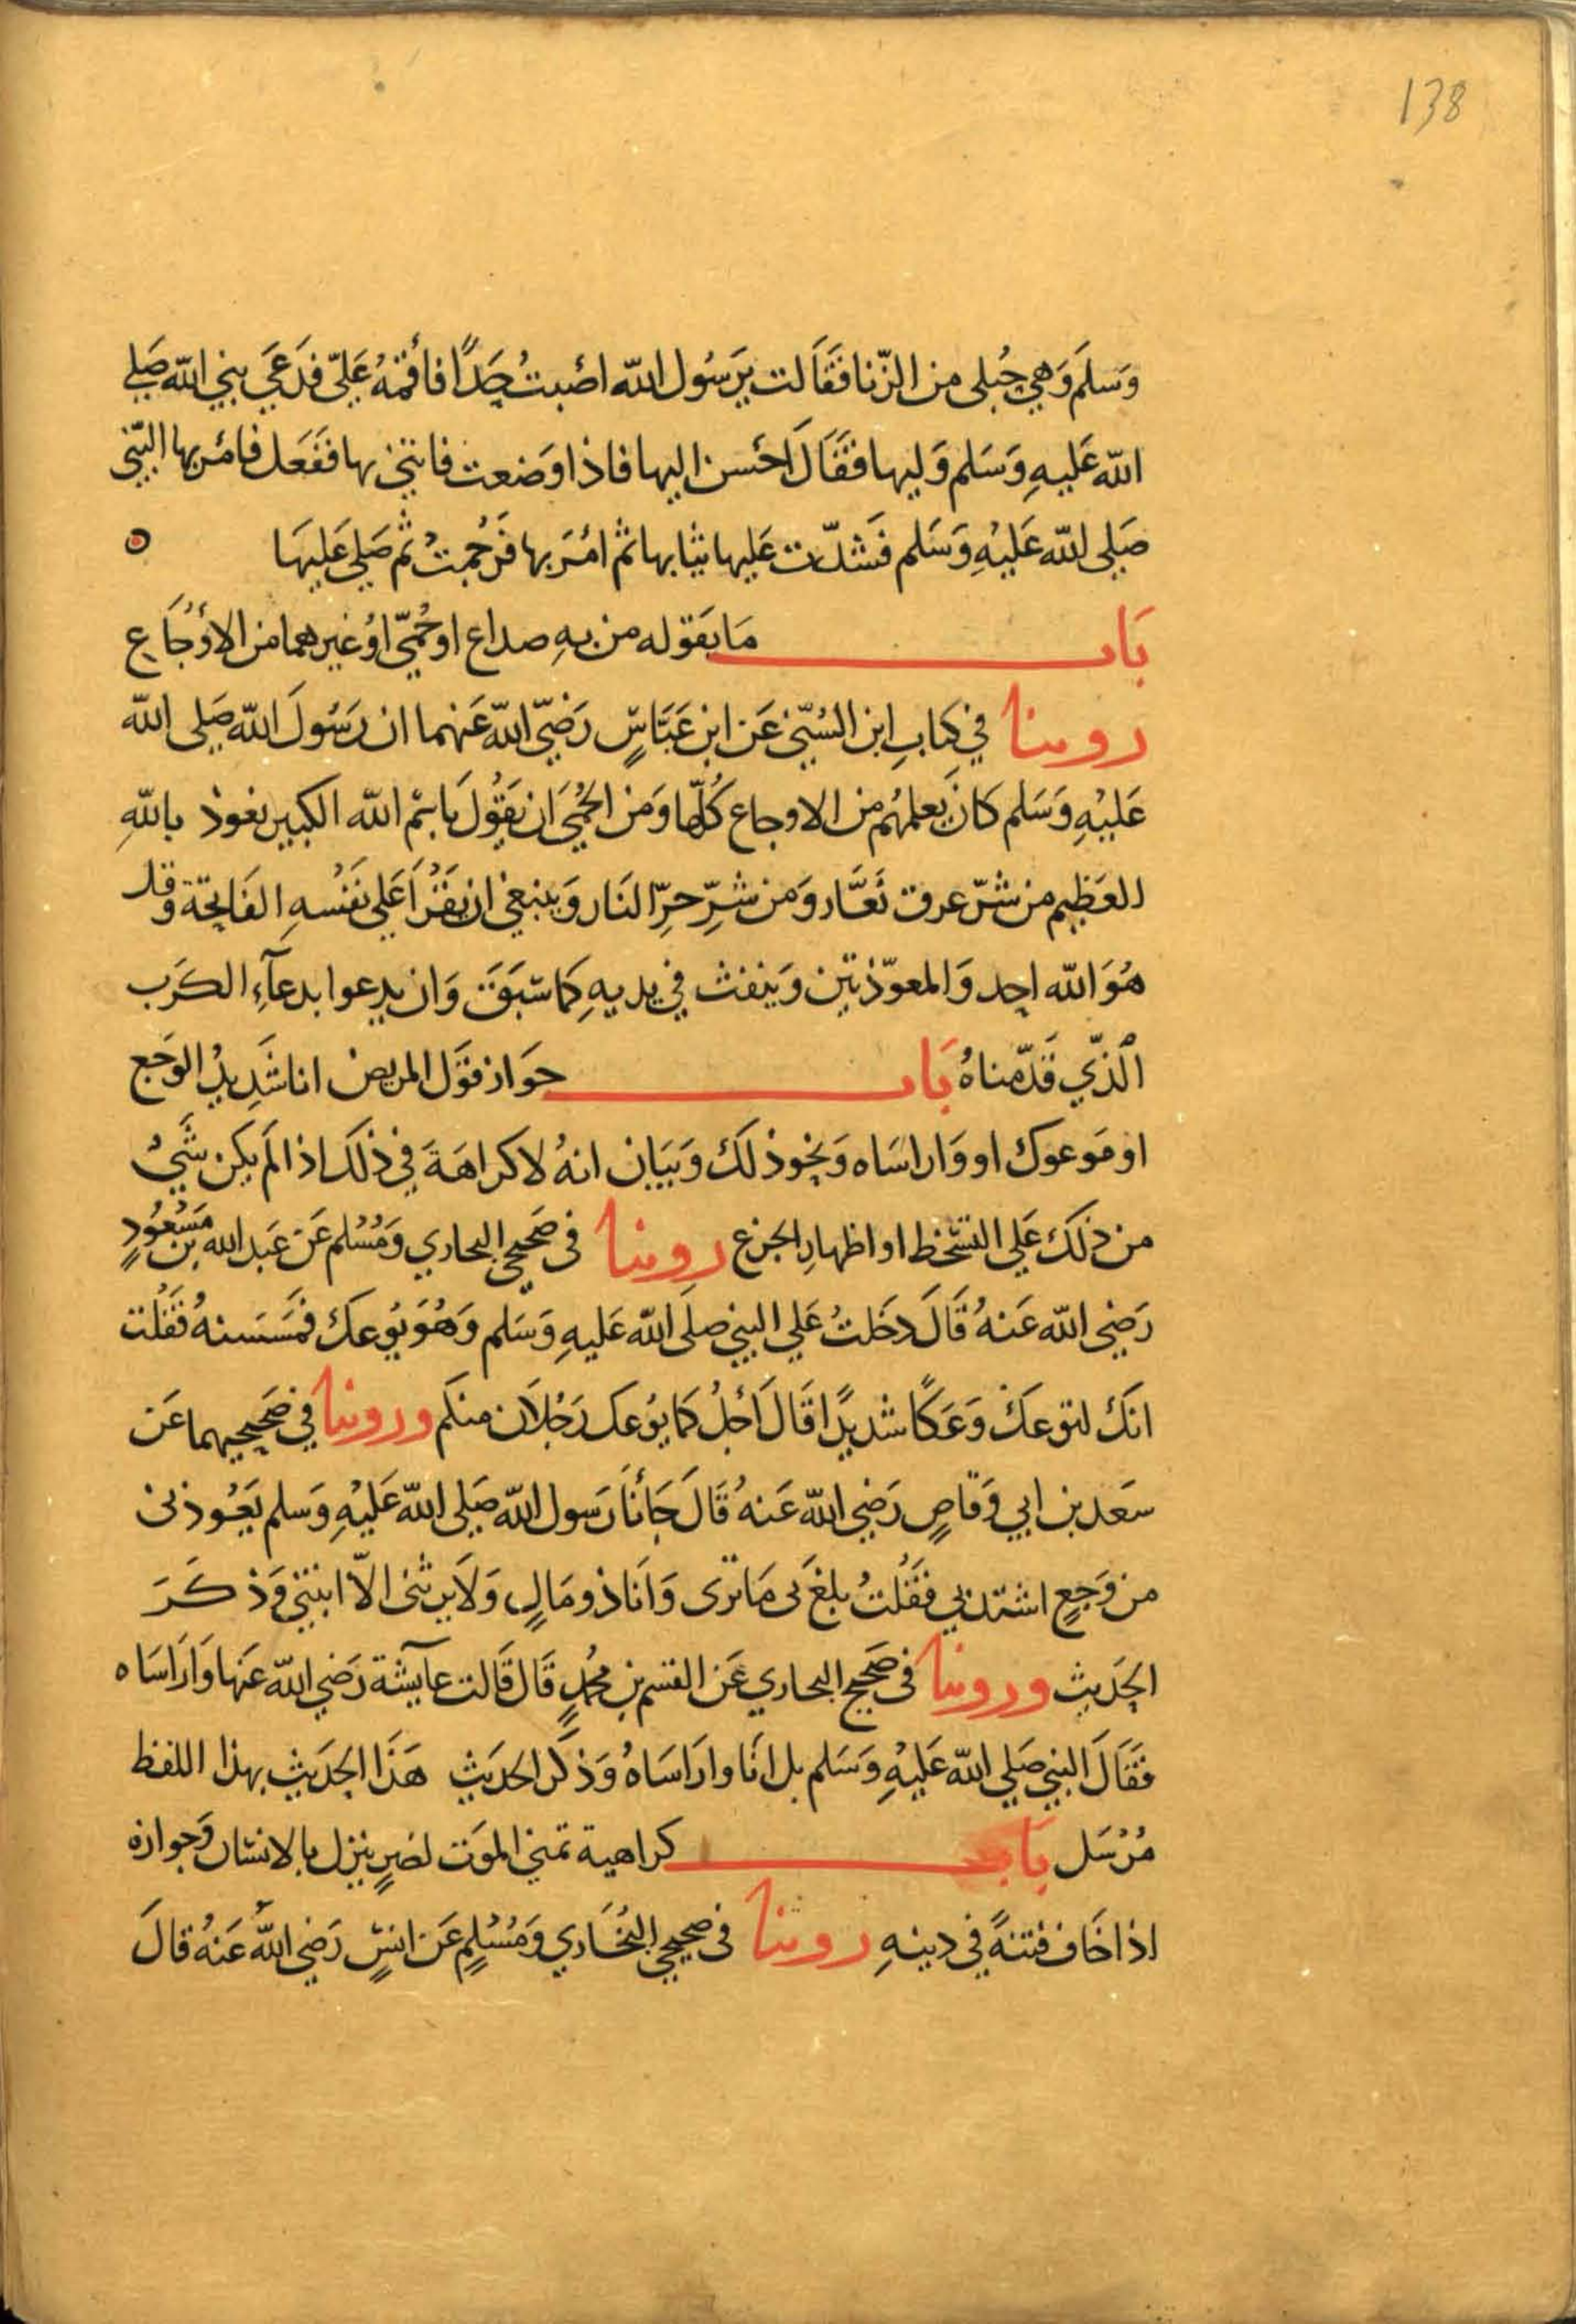 138
وَسلَم وَهي حُبلى من الزّنا فَقَالت يرَسُول الله اصَبتُ حَدًا فأقمْهُ عَليّ فدَعَي نبي الله صَلي
الله عَليهِ وَسَلم وَليها فقَالَ احَسن اليها فاذا وَضعت فاتني بها ففَعَل فامَر بها النّبي
صَلي الله عَليْهِ وَسَلم فَشدّت عَليها ثيابها ثم امَرَ بها فَرُجمتْ ثم صَلي عَليهَا
بَاب مَا يَقوله من بهِ صداع او حُمّي اوْ غيرهما من الأوْجَاع
روينا في كتابِ ابن السُنّي عَن ابن عَبّاسٍ رَضيَ الله عَنهما ان رَسُولَ الله صَلي الله
عَليْهِ وَسَلم كانَ يَعلمُهم من الاوجاع كُلّها وَمن الحُمّيَ ان يَقوُلَ باسْم الله الكبير نعوذ باللهِ
العَظيم من شرّ عرق نَعَّار وَمن شرِّ حرِّ النَار وَينبغي ان يَقرُأَ عَلي نَفسُهِ الفَاتحَة وقل
هُوَ الله احد وَالمعوّذتين وَينفث في يديهِ كمَا سَبَقَ وَان يدعوا بدعَآءِ الكَرب
الّذي قَدّمناهُ بَاب جوَاز قَول المريض انا شَدِيدُ الوَجَع
او مَوعوك او وَاراسَاه وَنحوذلكَ وَبَيَان انهُ لا كراهَةَ في ذلكَ اذا لَم يَكن شَيْ
من ذلكَ عَلي التسَخط او اظهارِ الجزع روينا فى صَحيحي البخاري وَمُسُلم عَن عَبد الله بن مَسْعُودٍ
رَضي الله عَنهُ قَالَ دخَلتُ عَلي النبي صَلَى الله عَليهِ وَسَلم وَهُوَ يُوعكَ فمَسَستهُ فَقُلت
انكَ لتوعكَ وَعَكًا شديدًا قَالَ اَجلُ كمَا يُوعك رَجُلاَن منكَم وروينا في صَحيحيهما عَن
سَعَد بن ابي وَقاصٍ رَضي الله عَنهُ قَالَ جَاءنَا رَسول الله صَلي الله عَليْهِ وَسَلم يَعُوذنى
من وَجَعٍ اشتد بي فقَلتُ بلغ بى مَا ترى وَانَا ذو مَالٍ وَلَا يرثنى الاّ ابنتي وَذكَرَ
الحَديث وروينا فى صَحيح البخاري عَن القسم بن مُحمدٍ قَال قَالت عايشَة رَضي الله عَنها وَارَاسَاه
فقَالَ النبي صَلي الله عَليْهِ وَسَلم بل انَا وارَاسَاهُ وَذكَر الحديث هَذا الحَديث بهذا اللفظ
مُرْسَل بَاب كراهية تمني المَوت لضرٍ ينزل بالانسَان وَجوازه
اذا خَاف فتنَةً في دينهِ روينا فى صحيحي البُخَاري وَمُسْلِمٍ عَن انسٍ رَضي اللهُ عَنهُ قالَ